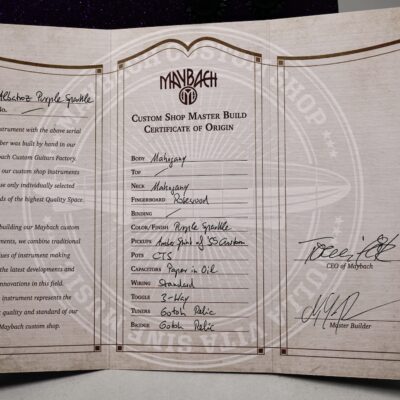 Albatroz Purple Sparkle
No.
nstrument with the above serial
ber was built by hand in our
bach Custom Guitars Factory.
our custom shop instruments
se only individually selected
ds of the highest Quality Space.
building our Maybach custom
ments, we combine traditional
ues of instrument making
the latest developments and
nnovations in this field.
instrument represents the
t quality and standard of our
Maybach custom shop.
MAYBACH
CUSTOM SHOP MASTER BUILD
CERTIFICATE OF ORIGIN
BODY Mahogany
TOP /
NECK Mahogany
FINGERBOARD Rosewood
BINDING /
COLOR/FINISH Purple Sparkle
PICKUPS Amber Spirit of 59 Custom
POTS CTS
CAPACITORS Paper in Oil
WIRING Standard
TOGGLE 3-Way
TUNERS Gotoh Relic
BRIDGE Gotoh Relic
CEO of Maybach
Master Builder